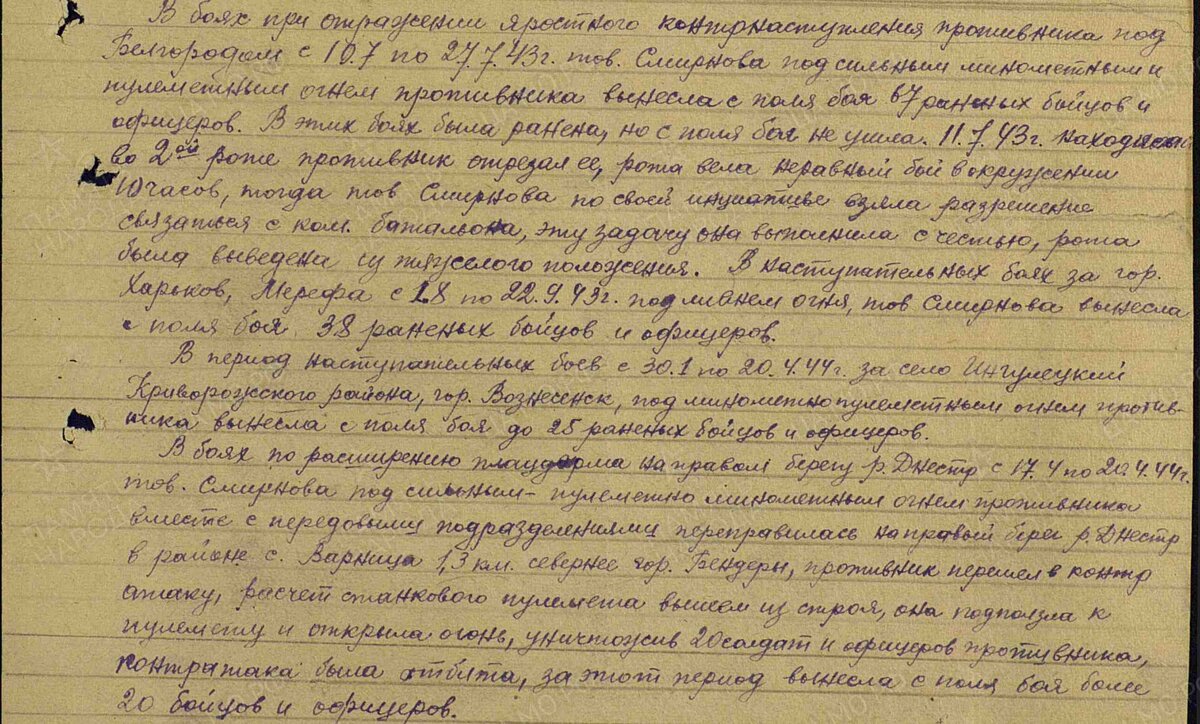 В боях при отражении яростного контрнаступления противника под
Белгородом с 10.7 по 27.7.43г. тов. Смирнова под сильным минометным и
пулеметным огнем противника вынесла с поля боя 67 раненых бойцов и
офицеров. В этих боях была ранена, но с поля боя не ушла. 11.7.43г. находясь
во 2ой роте противник отрезал ее, рота вела неравный бой в окружении
10 часов, тогда тов Смирнова по своей инциативе взяла разрешение
связаться с ком. баталъона, эту задачу она выполнила с честью, рота
была выведена из тяжелого положения. В наступательных боях за гор.
Харьков, Мерефа с 1.8 по 22.9.43г. под ливнем огня, тов Смирнова вынесла
с поля боя 38 раненых бойцов и офицеров.
В период наступательных боев с 30.1 по 20.4.44г. за село Ингулецкий
Криворожского района, гор. Вознесенск, под минометно пулеметным огнем против-
ника вынесла с поля боя до 25 раненых бойцов и офицеров.
В боях по расширению плацдарма на правом берегу р. Днестр с 17.4 по 20.4.44г.
тов. Смирнова под сильным-пулеметно минометным огнем противника
вместе с передовыми подразделениями переправилась на правый берег р. Днестр
в районе с. Варница 1,3 км. севернее гор. Бендеры, противник перешел в контр
атаку, расчет станкового пулемета вышел из строя, она подползла к
пулемету и открыла огонь, уничтожив 20 солдат и офицеров противника,
контратака была отбита, за этот период вынесла с поля боя более
20 бойцов и офицеров.